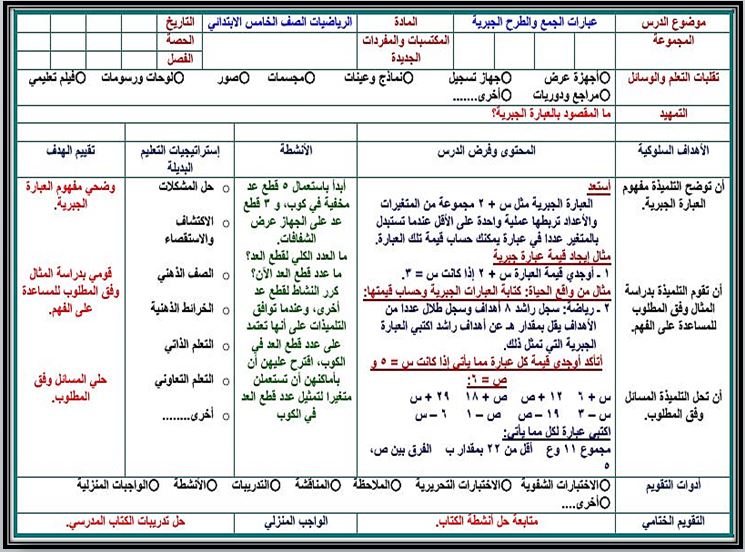 موضوع الدرس عبارات الجمع والطرح الجبرية المادة الرياضيات الصف الخامس الابتدائي التاريخ
المجموعة المكتسبات والمفردات الجديدة الحصة
الفصل
تقلبات التعلم والوسائل أجهزة عرض جهاز تسجيل نماذج وعينات مجسمات صور لوحات ورسومات فيلم تعليمي
مراجع ودوريات أخرى.......
التمهيد ما المقصود بالعبارة الجبرية؟
الأهداف السلوكية المحتوى وفرض الدرس الأنشطة إستراتيجيات التعليم البديلة تقييم الهدف
أن توضح التلميذة مفهوم
العبارة الجبرية.
أن تقوم التلميذة بدراسة
المثال وفق المطلوب
للمساعدة على الفهم.
أن تحل التلميذة المسائل
وفق المطلوب.
أستعد
العبارة الجبرية مثل س + ٢ مجموعة من المتغيرات
والأعداد تربطها عملية واحدة على الأقل عندما تستبدل
بالمتغير عددا في عبارة يمكنك حساب قيمة تلك العبارة.
مثال إيجاد قيمة عبارة جبرية
١ - أوجدي قيمة العبارة س + ٢ إذا كانت س = ٣.
مثال من واقع الحياة: كتابة العبارات الجبرية وحساب قيمتها:
٢ - رياضة: سجل راشد ٨ أهداف وسجل طلال عددا من
الأهداف يقل بمقدار هـ عن أهداف راشد اكتبي العبارة
الجبرية التي تمثل ذلك.
أتأكد أوجدي قيمة كل عبارة مما يأتي إذا كانت س = ٥ و
ص = ٦:
س + ٦ ١٢ + ص ص + ١٨ ٢٩ + س
س – ٣ ١٩ – ص ص – ١ ٦ – س
اكتبي عبارة لكل مما يأتي:
مجموع ١١ وع أقل من ٢٢ بمقدار ب الفرق بين ص،
٥
أبدأ باستعمال ٥ قطع عد
مخفية في كوب، و ٣ قطع
عد على الجهاز عرض
الشفافات.
ما العدد الكلي لقطع العد؟
ما عدد قطع العد الآن؟
كرر النشاط لقطع عد
أخرى، وعندما توافق
التلميذات على أنها تعتمد
على عدد قطع العد في
الكوب، اقترح عليهن أن
بأماكنهن أن تستعملن
متغيرا لتمثيل عدد قطع العد
في الكوب
حل المشكلات
الاكتشاف
والاستقصاء
الصف الذهني
الخرائط الذهنية
التعلم الذاتي
التعلم التعاوني
أخرى........
وضحي مفهوم العبارة
الجبرية.
قومي بدراسة المثال
وفق المطلوب للمساعدة
على الفهم.
حلي المسائل وفق
المطلوب.
أدوات التقويم الاختبارات الشفوية الاختبارات التحريرية الملاحظة المناقشة التدريبات الأنشطة الواجبات المنزلية
أخرى....
التقويم الختامي متابعة حل أنشطة الكتاب. الواجب المنزلي حل تدريبات الكتاب المدرسي.